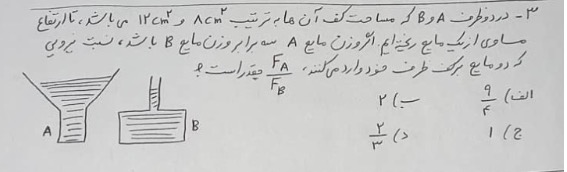 ۳- در دو ظرف A و B که مساحت کف آن ها به ترتیب ۸cm² و ۱۲cm² می باشد، تا ارتفاع
مساوی از یک مایع ریخته ایم. اگر وزن مایع A سه برابر وزن مایع B باشد، نسبت نیرویی
که دو مایع بر کف ظرف خود وارد می کنند، F_A/F_B چقدر است؟
الف) ۹/۴ ب) ۲
ج) ۱ د) ۲/۳
A B